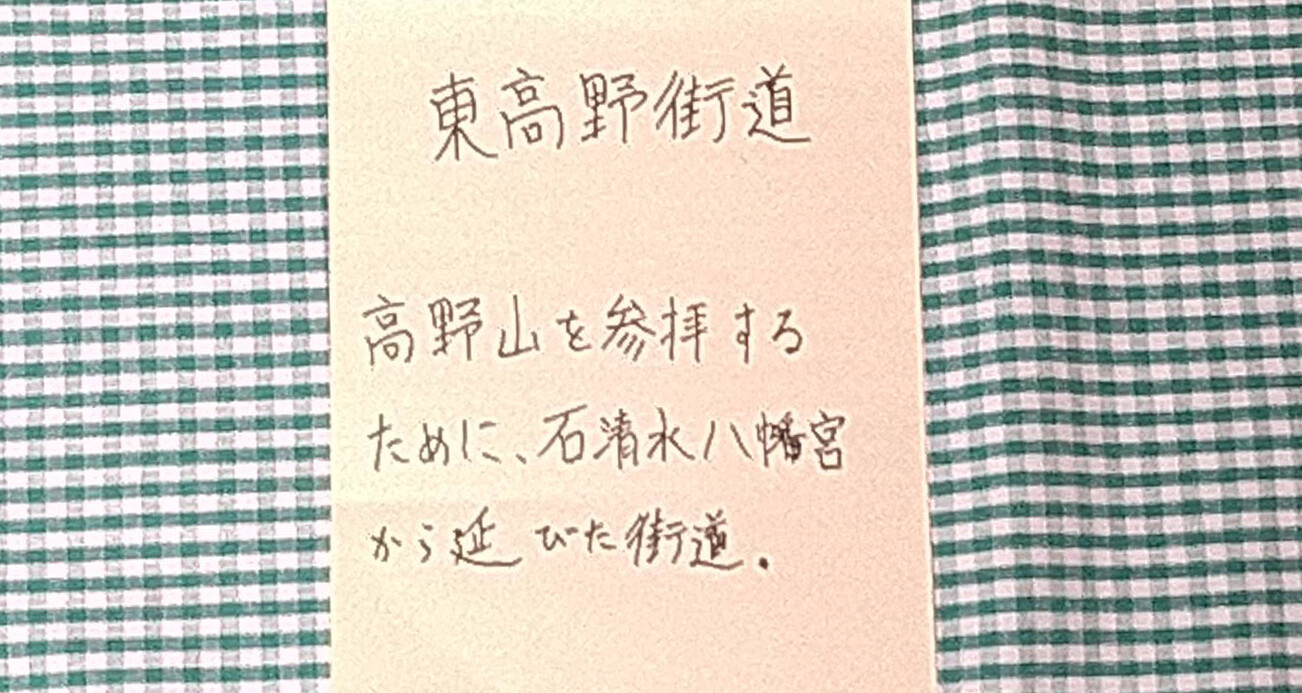 東高野街道
高野山を参拝する
ために、石清水八幡宮
から延びた街道.